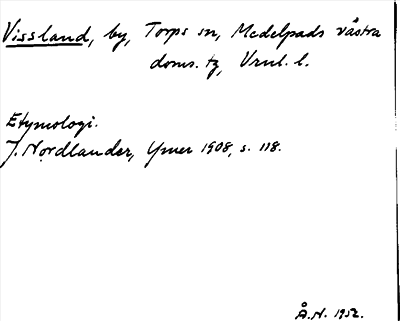 Vissland, by, Torps sn, Medelpads västra
doms. tg, Vrnl. l.
Etymologi.
J. Nordlander, Ymer 1908, s. 118.
Å.N. 1952.